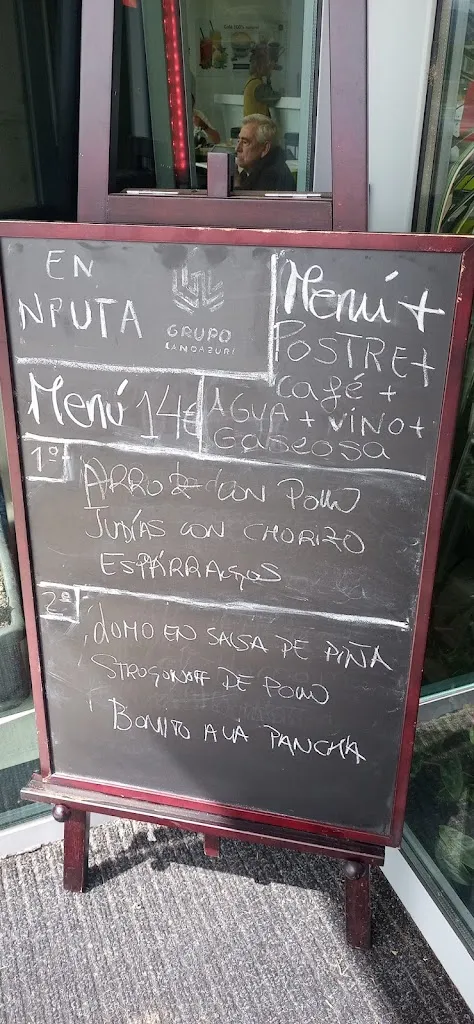 EN
NPUTA
GRUPO
LANDABURU
Menú +
POSTRE +
café +
AGUA + VINO +
Gaseosa
Menú 14€
1º
ARROZ CON POLLO
JUDÍAS CON CHORIZO
ESPÁRRAGOS
2º
LOMO EN SALSA DE PIÑA
STROGONOFF DE POLLO
BONITO A LA PANCHA